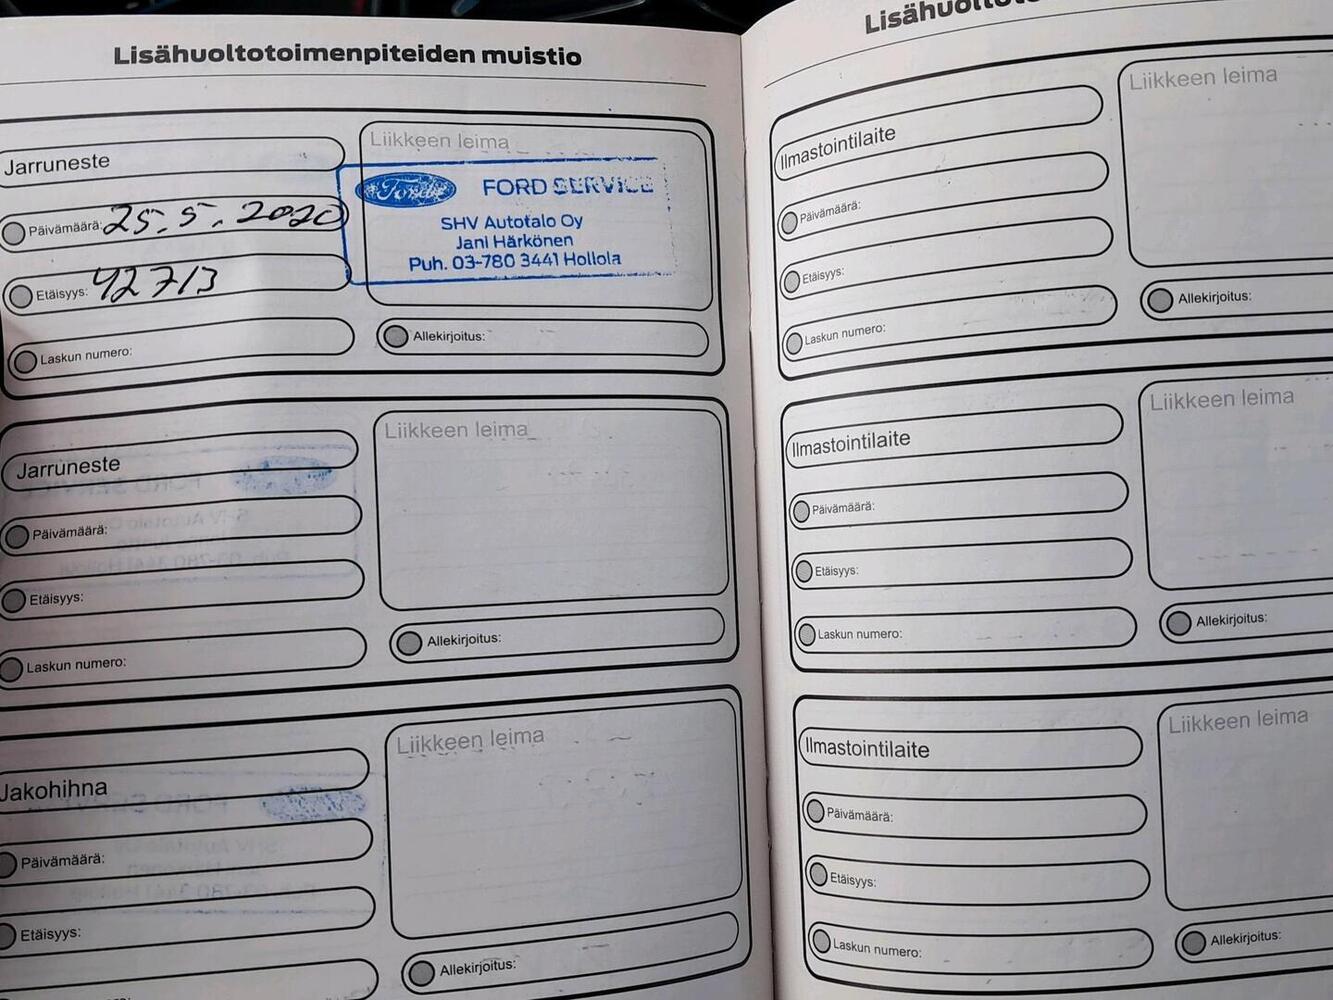 Lisähuoltotoimenpiteiden muistio
Jarruneste
Päivämäärä: 25.5.2020
Etäisyys: 42713
Laskun numero:
Liikkeen leima
Ford FORD SERVICE
SHV Autotalo Oy
Jani Härkönen
Puh. 03-780 3441 Hollola
Allekirjoitus:
Jarruneste
Päivämäärä:
Etäisyys:
Laskun numero:
Liikkeen leima
Allekirjoitus:
Jakohihna
Päivämäärä:
Etäisyys:
Liikkeen leima
Allekirjoitus:
Ilmastointilaite
Päivämäärä:
Etäisyys:
Laskun numero:
Liikkeen leima
Allekirjoitus:
Ilmastointilaite
Päivämäärä:
Etäisyys:
Laskun numero:
Liikkeen leima
Allekirjoitus:
Ilmastointilaite
Päivämäärä:
Etäisyys:
Laskun numero:
Liikkeen leima
Allekirjoitus: